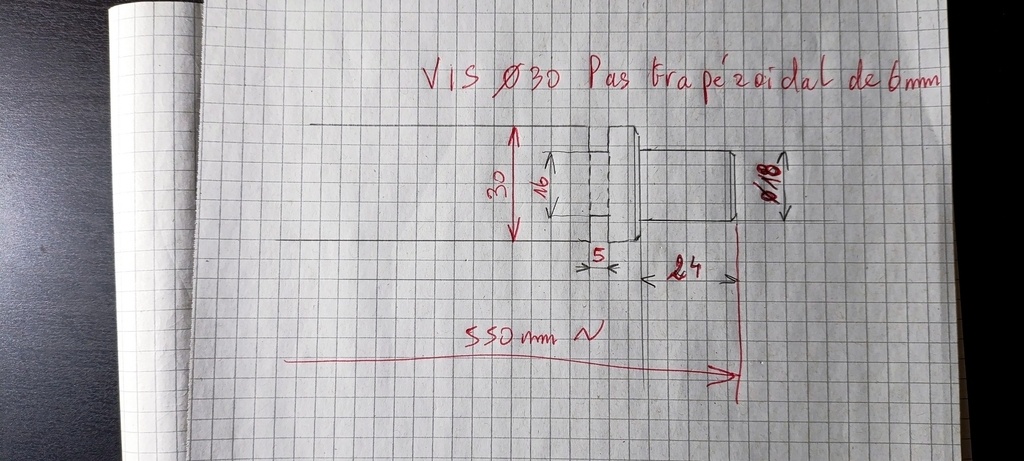 VIS Ø30 Pas trapézoidal de 6mm
30
16
Ø18
5
24
550mm ~